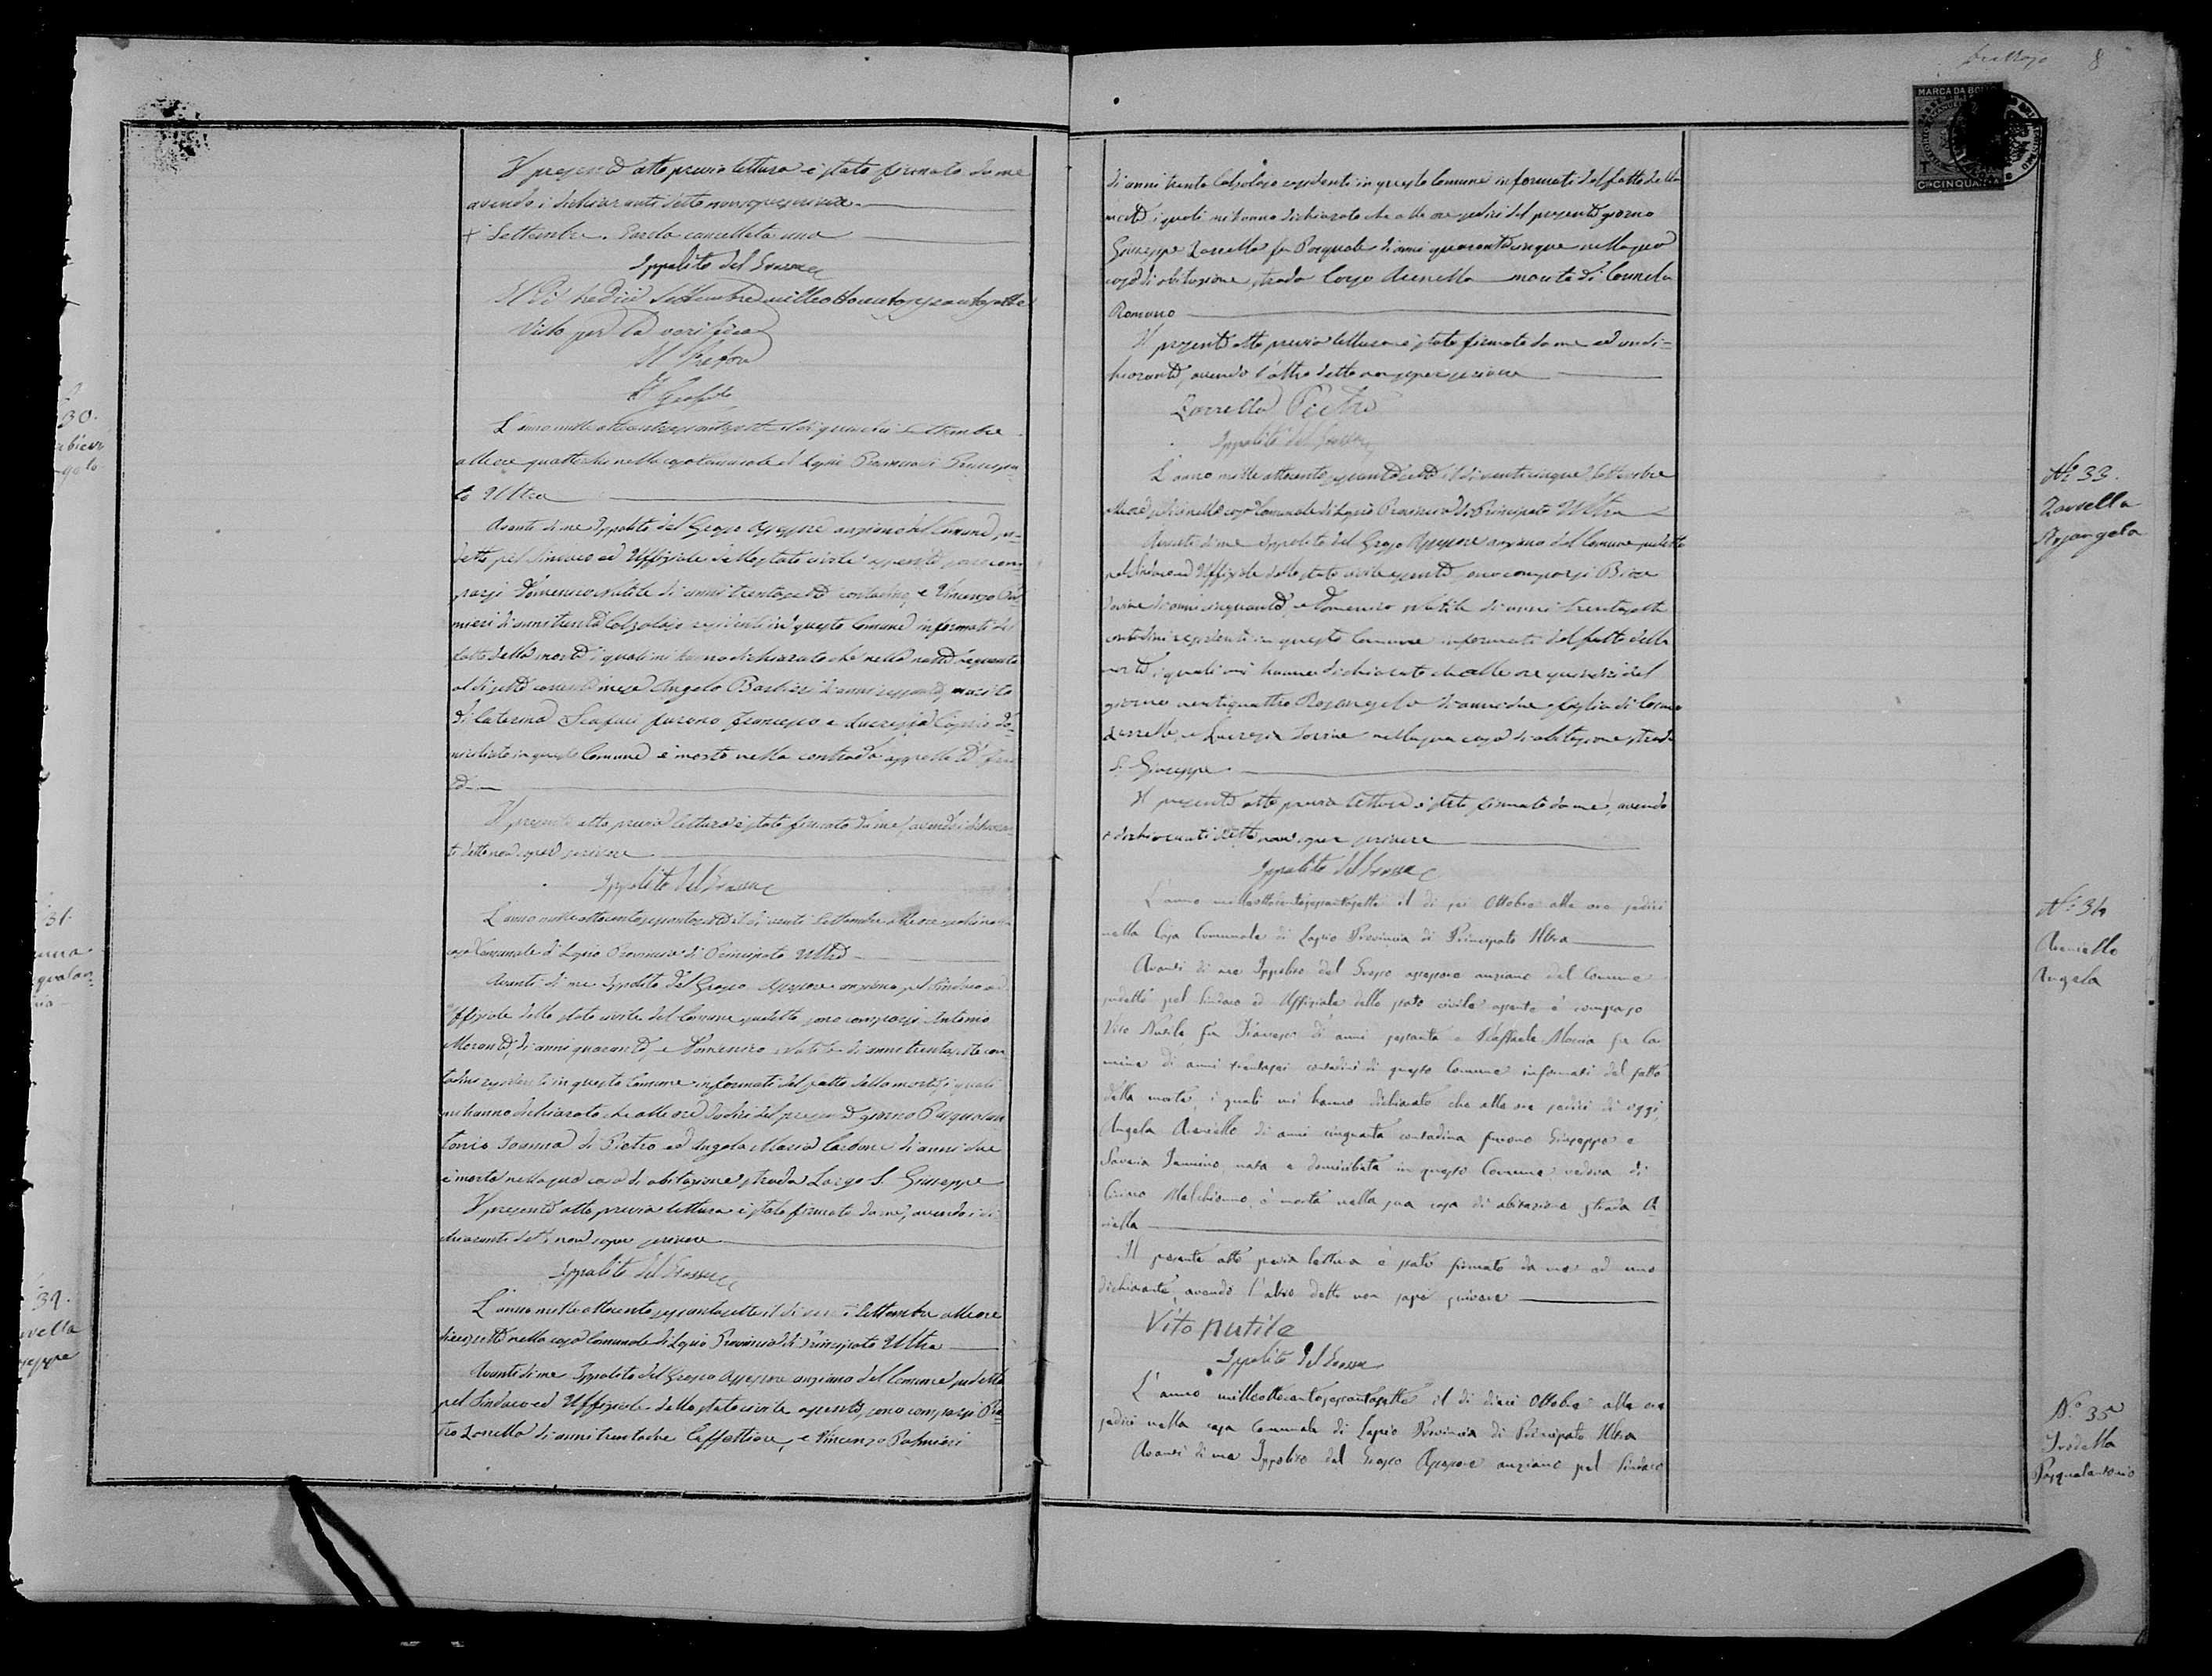 Il presente atto previa lettura è stato firmato da me
avendo i dichiaranti detto non saper scrivere
+ Settembre. Parola cancellata una
Ippolito del Grosso
Il dì tredici Settembre milleottocentosessantasette
Visto per la verifica
Il Pretore
30.
L'anno milleottocentosessantasette il dì quindici Settembre
alle ore quattordici nella casa Comunale di Lapio Provincia di Principa
to Ultra
Avanti di me Ippolito del Grosso Assessore anziano del Comune su=
detto pel Sindaco ed Uffiziale dello stato civile assente sono com
parsi Domenico Nutile di anni trentasette contadino, e Vincenzo Pal
mieri di anni trenta Calzolajo residenti in questo Comune informati del
fatto della morte i quali mi hanno dichiarato che nella notte seguente
al dì sette corrente mese Angelo Barbieri di anni sessanta marito
di Caterina Scafuri furono Francesco e Lucrezia do=
miciliato in questo Comune è morto nella contrada appellata
Il presente atto previa lettura è stato firmato da me, avendo i dichiaran
ti detto non saper scrivere
Ippolito del Grosso
31.
L'anno milleottocentosessantasette il dì venti Settembre alle ore sedici nella
casa Comunale di Lapio Provincia di Principato Ultra
Avanti di me Ippolito del Grosso Assessore anziano pel Sindaco ed
Uffiziale dello stato civile del Comune sudetto sono comparsi Antonio
Morante, di anni quaranta, e Domenico Nutile di anni trentasette con
tadini residenti in questo Comune informati del fatto della morte, i quali
mi hanno dichiarato che alle ore dodici del presente giorno Pasqualan
tonio Ioanna di Pietro ed Angela Maria Carbone di anni due
è morto nella sua casa di abitazione strada Largo S. Giuseppe
Il presente atto previa lettura è stato firmato da me, avendo i di
chiaranti detto non saper scrivere
Ippolito del Grosso
32.
L'anno milleottocentosessantasette il dì venti Settembre alle ore
diecisette nella casa Comunale di Lapio Provincia di Principato Ultra
Avanti di me Ippolito del Grosso Assessore anziano del Comune sudetto
pel Sindaco ed Uffiziale dello stato civile assente, sono comparsi Pie
tro Zarrella di anni trentadue Caffettiere, e Vincenzo Palmieri
8
MARCA DA BOLLO
CMI CINQUANTA
di anni trenta Calzolajo residenti in questo Comune informati del fatto della
morte, i quali mi hanno dichiarato che alle ore sedici del presente giorno
Giuseppe Zarrella fu Pasquale di anni quarantacinque nella sua
casa di abitazione strada Corso Arenella marito di Carmela
Romano
Il presente atto previa lettura è stato firmato da me ed un di=
chiarante, avendo l'altro detto non saper scrivere
Zarrella Pietro
Ippolito del Grosso
N.º 33.
Zarrella
Rosangela
L'anno milleottocentosessantasette il dì venticinque Settembre
alle ore sedici nella casa Comunale di Lapio Provincia di Principato Ultra
Avanti di me Ippolito del Grosso Assessore anziano del Comune sudetto
pel Sindaco ed Uffiziale dello stato civile assente, sono comparsi
di anni cinquanta, e Domenico Nutile di anni trentasette
contadini residenti in questo Comune informati del fatto della
morte, i quali mi hanno dichiarato che alle ore quindici del
giorno ventiquattro Rosangela di anni due figlia di Cosmo
Zarrella, e Lucrezia nella sua casa di abitazione strada
S. Giuseppe
Il presente atto previa lettura è stato firmato da me, avendo
i dichiaranti detto non saper scrivere
Ippolito del Grosso
N.º 34
Aeniello
Angela
L'anno milleottocentosessantasette il dì sei Ottobre alle ore sedici
nella Casa Comunale di Lapio Provincia di Principato Ultra
Avanti di me Ippolito del Grosso assessore anziano del Comune
sudetto pel Sindaco ed Uffiziale dello stato civile assente è comparso
Vito Nutile fu Francesco di anni sessanta e Raffaele Maria fu Car
mine di anni trentasei contadini di questo Comune informati del fatto
della morte, i quali mi hanno dichiarato che alle ore sedici di oggi,
Angela Aeniello di anni cinquanta contadina furono Giuseppe e
Saveria Iannino, nata e domiciliata in questo Comune vedova di
Ciriaco Melchionno, è morta nella sua casa di abitazione strada A
riella
Il presente atto previa lettura è stato firmato da me ed uno
dichiarante, avendo l'altro detto non saper scrivere
Vito Nutile
Ippolito del Grosso
N.º 35
Irodella
Pasqualantonio
L'anno milleottocentosessantasette il dì dieci Ottobre alle ore
sedici nella casa Comunale di Lapio Provincia di Principato Ultra
Avanti di me Ippolito del Grosso Assessore anziano pel Sindaco